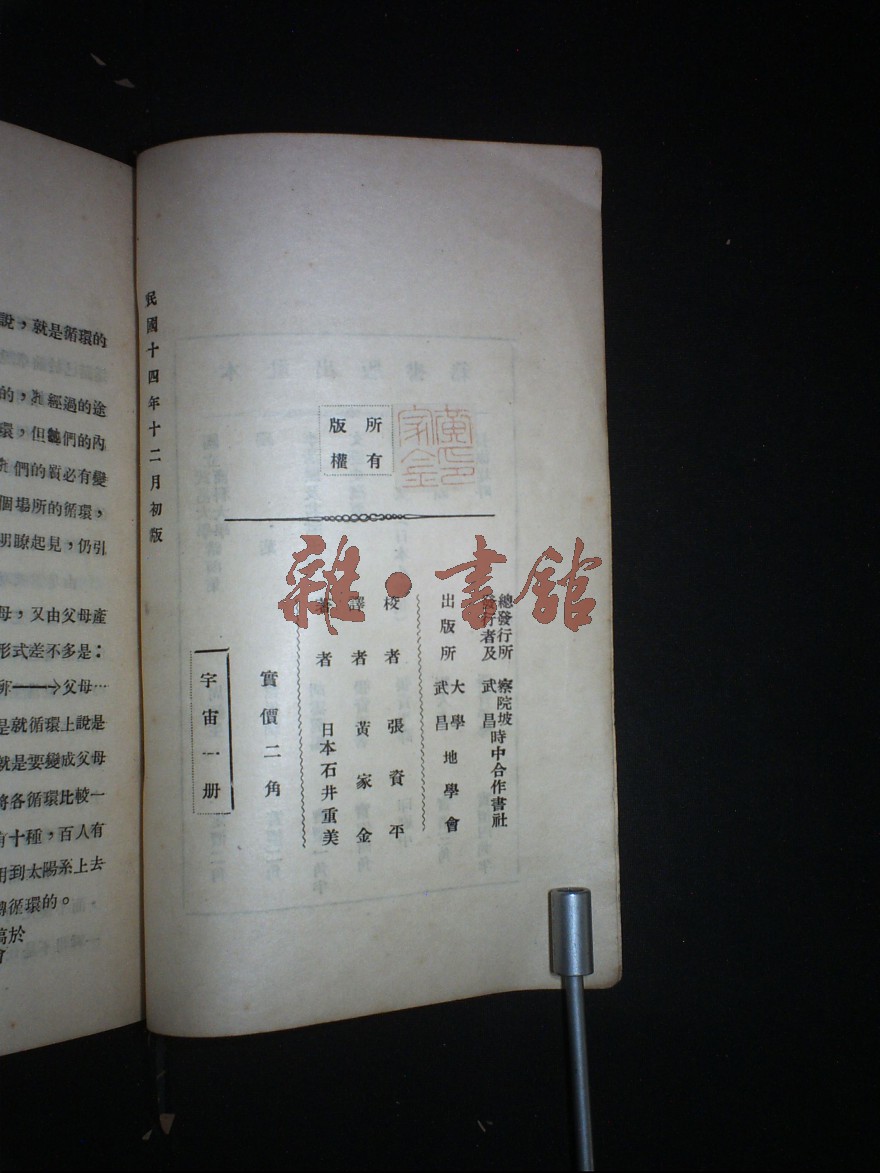 說，就是循環的
的，其經過的途
環，但牠們的內
們的質必有變
個場所的循環，
明瞭起見，仍引
母，又由父母產
形式差不多是：
卵──→父母…
是就循環上說是
就是要變成父母
將各循環比較一
有十種，百人有
用到太陽系上去
轉循環的。
民國十四年十二月初版
版權
所有
黃家金印
宇宙一册
實價二角
著者 日本石井重美
譯者 黃家金
校者 張資平
出版所 武昌大學地學會
發行者及總發行所 武昌察院坡時中合作書社
雜·書館